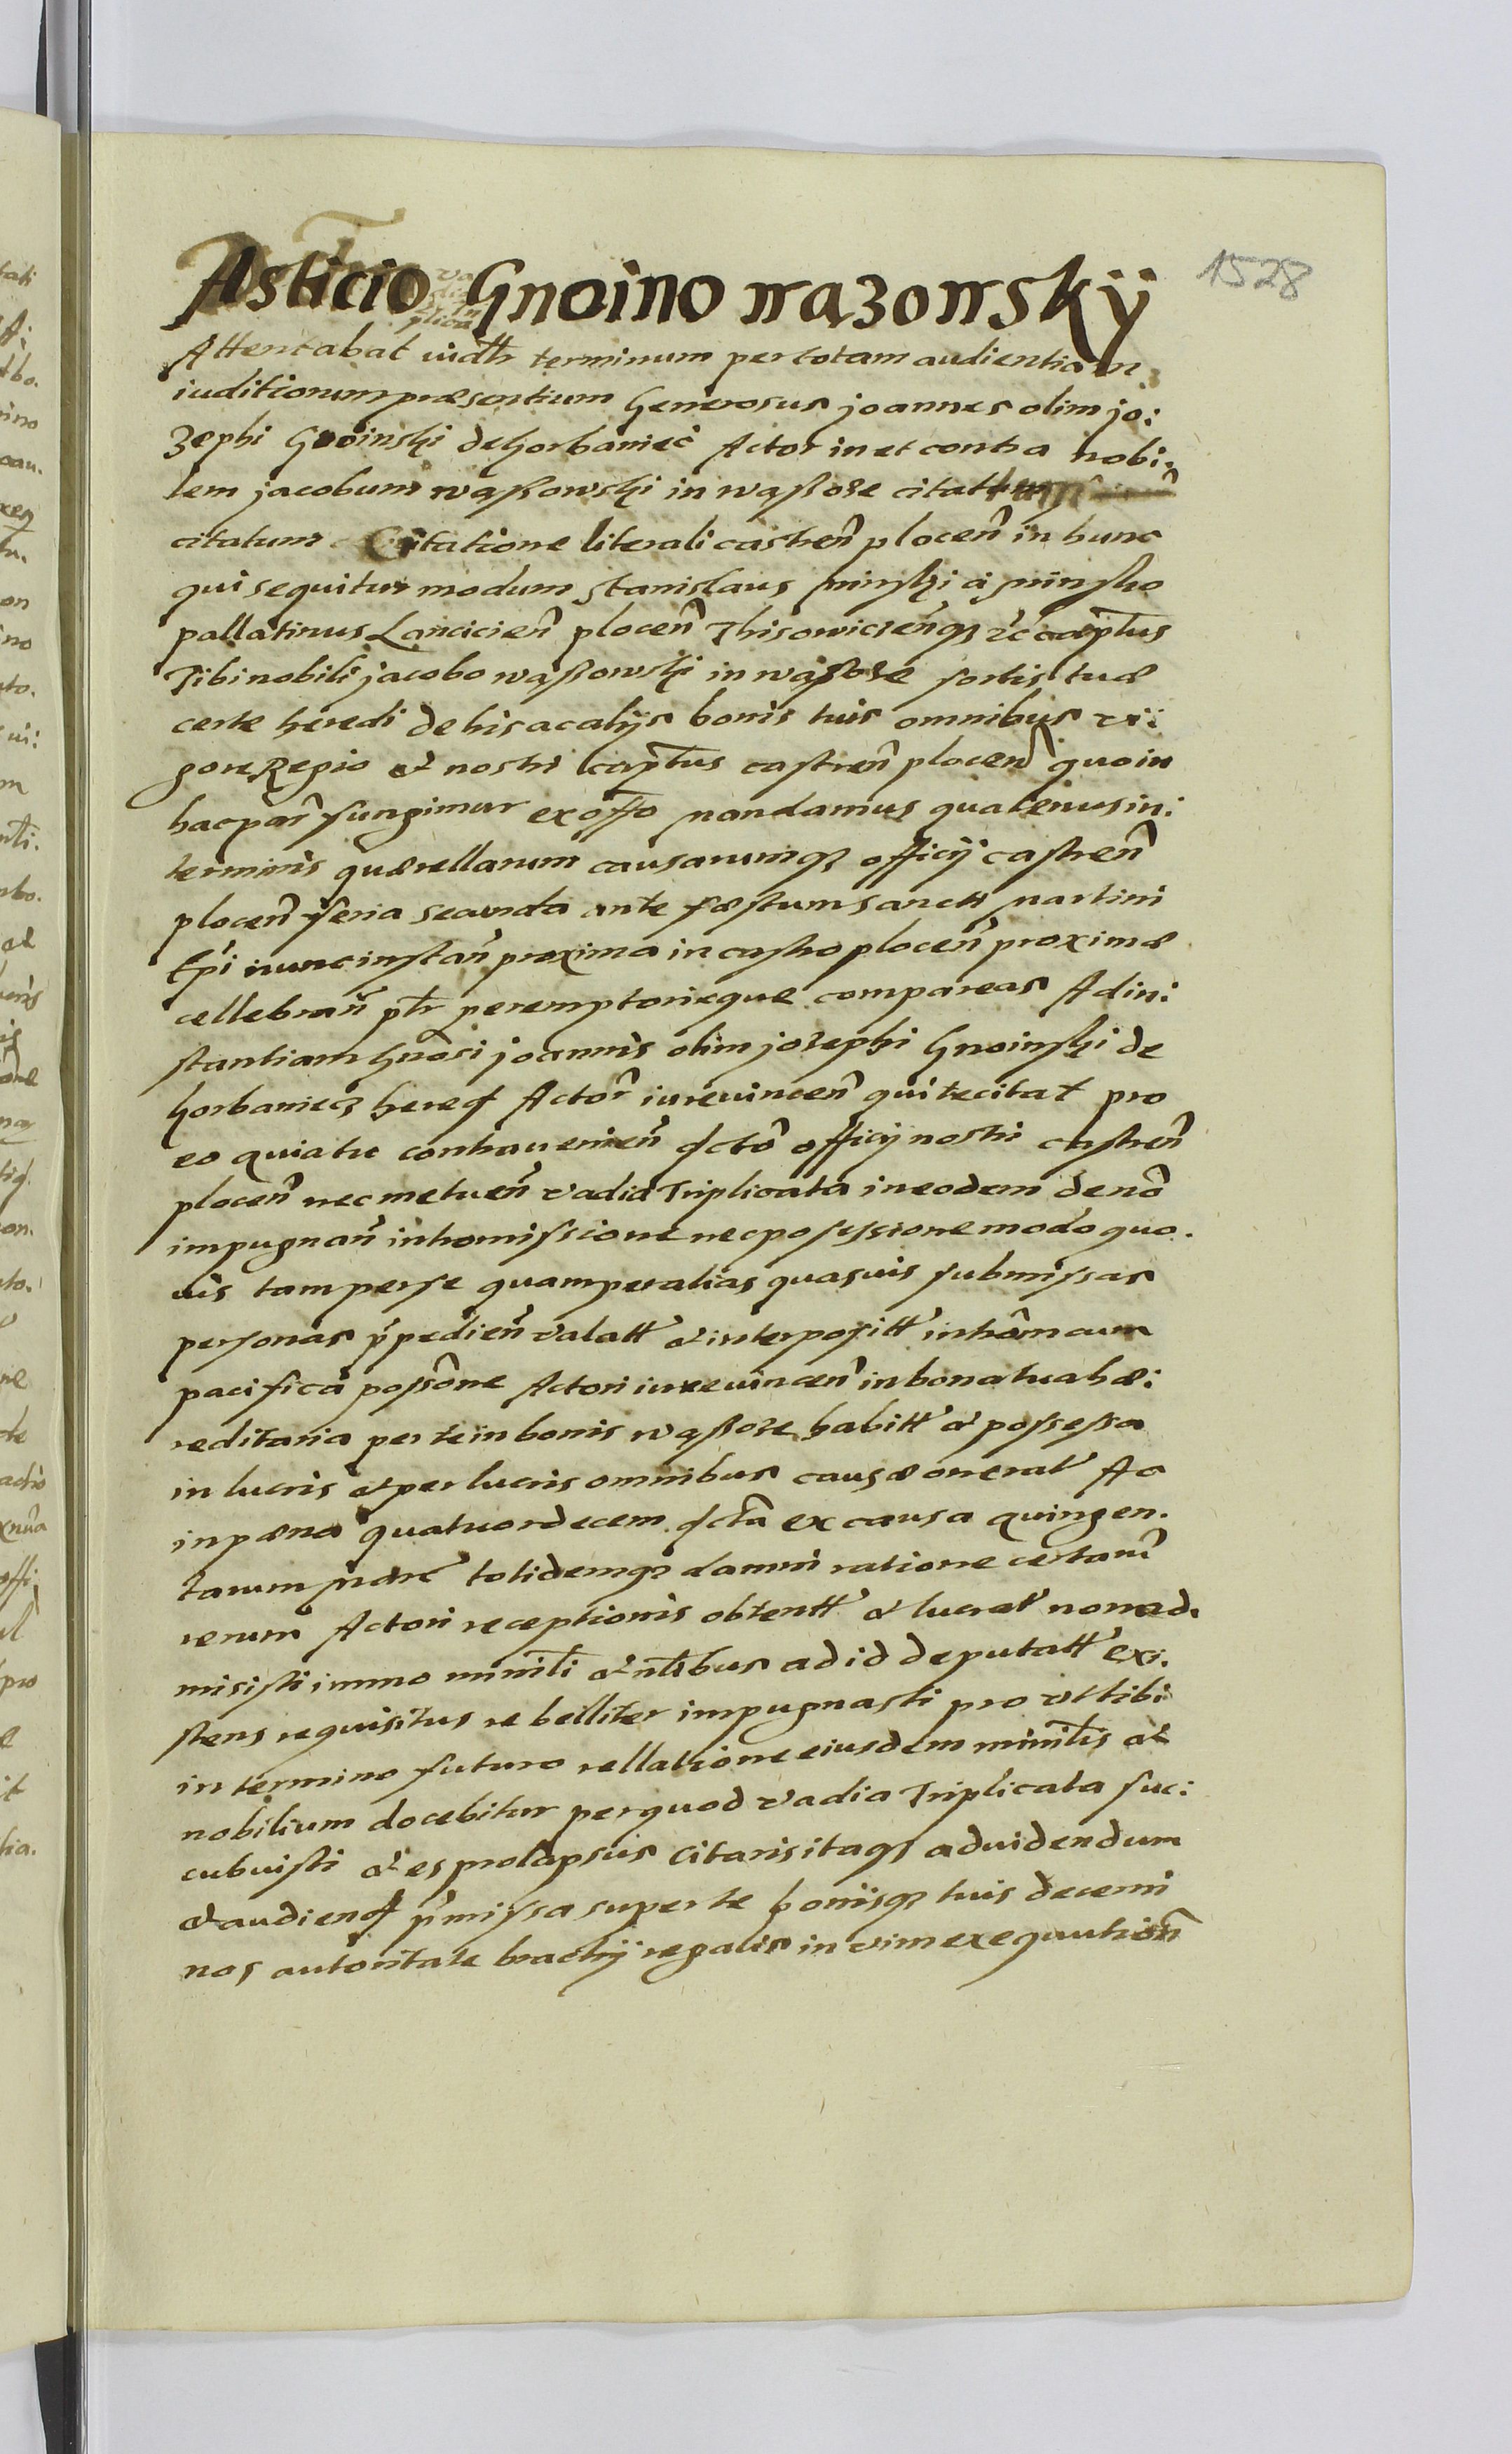 Asticio Gnoino wazowsky
1528
Attentabat iudltr terminum per totam audientiam
iuditiorum præsentium Generosus joannes olim jo:
zephi Gnoinski de Gorbaniecz Actor in et contra nobi:
lem jacobum wąssowski in wąssoze
citatum Citatione literali castren̄ plocen̄ in hunc
qui sequitur modum Stanislaus minski a minsko
pallatinus Lancicien̄ plocen̄ Thisowiczen̄q₃ &c capt̄us
Tibi nobili jacobo wąssowski in wąssoze sortis tuæ
certe heredi de his ac alijs bonis tuis omnibus vi:
gore Regio et nostri capt̄us castren̄ plocen̄ quo in
hac par̄ fungimur ex offo mandamus quatenus in:
terminis quærellarum causarumq₃ officij castren̄
plocen̄ feria secunda ante fæstum sancti martini
Epī nunc instan̄ proxima in castro plocen̄ proximæ
cellebran̄ ptr peremptorieque compareas Ad in:
stantiam Gnosi joannis olim josephi Gnoinski de
Gorbaniecz hered Actor̄ iure vincen̄ qui te citat pro
eo quia tu contravenien̄ dcto officij nostri castren̄
plocen̄ nec metuen̄ vadia Triplicata in eodem deno
impugnan̄ intromissione nec possessione modo quo.
vis tam per se quam per alias quasvis submissas
personas p̄pedien̄ valatt et interpositt introm cum
pacifica possōne Actori iure vincen̄ in bona tua hæ:
reditaria per te in bonis wąssoze habitt et possessa
in lucris et per lucris omnibus causæ onerat Ac
in pæna quatuordecem dcta ex causa quingen.
tarum mar̄c totidemq₃ damni ratione certarū
rerum Actori receptionis obtentt et lucrat non ad.
misisti immo minitli et nltbus ad id deputatt exi.
stens requisitus rebelliter impugnasti pro ut tibi
in termino futuro rellatione eiusdem minitlis et
nobilium docebitur per quod vadia Triplicata suc:
cubuisti et es prolapsus Citaris itaq₃ ad videndum
et audiend p̄missa super te bonisq₃ tuis decerni
nos autoritate brachij regalis in vim exequutiōn